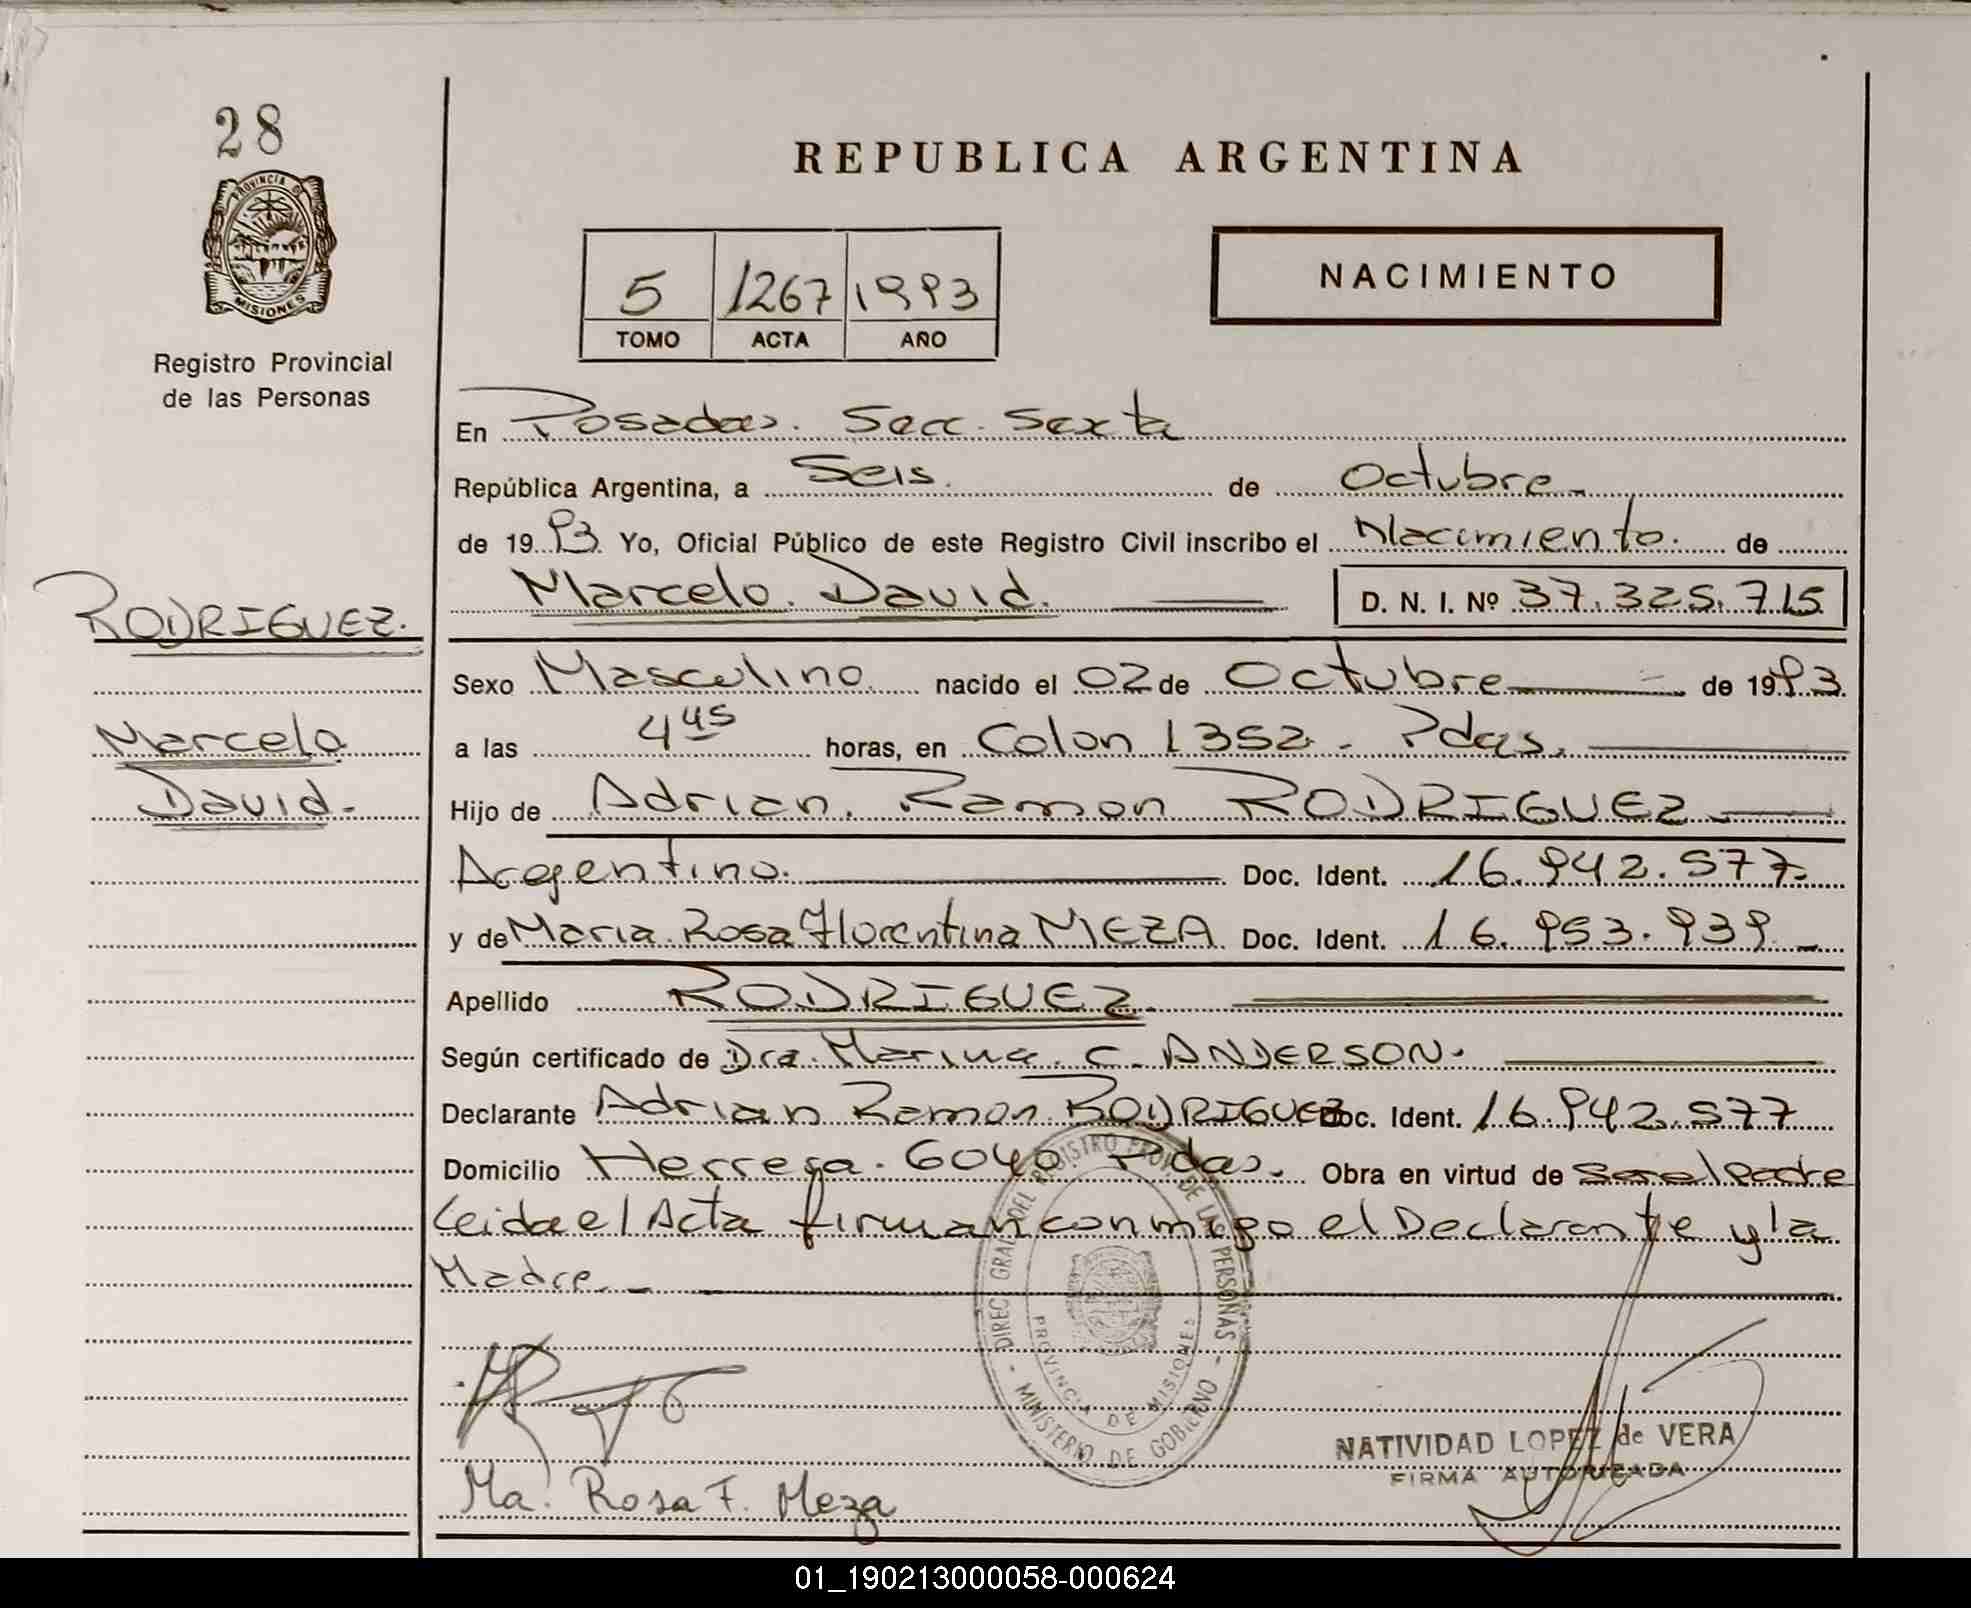 28
REPUBLICA ARGENTINA
PROVINCIA DE
MISIONES
Registro Provincial
de las Personas
5 1267 1993
TOMO ACTA AÑO
NACIMIENTO
En Posadas. Secc. Sexta
República Argentina, a Seis. de Octubre.
de 1993. Yo, Oficial Público de este Registro Civil inscribo el Nacimiento. de
Marcelo. David. D. N. I. Nº 37.325.715
RODRIGUEZ.
Marcelo
David.
Sexo Masculino. nacido el 02 de Octubre de 1993.
a las 4 45 horas, en Colon 1352. Pdas.
Hijo de Adrian. Ramon RODRIGUEZ
Argentino. Doc. Ident. 16.942.577.
y de Maria. Rosa Florentina MEZA Doc. Ident. 16.953.939
Apellido RODRIGUEZ.
Según certificado de Dra. Marina C. ANDERSON.
Declarante Adrian Ramon RODRIGUEZ Doc. Ident. 16.942.577
Domicilio Herrera. 6040 Pdas. Obra en virtud de Ser el Padre
Leida el Acta firman conmigo el Declarante y la
Madre.
DIREC. GRAL. DEL REGISTRO PROV. DE LAS PERSONAS
MINISTERIO DE GOBIERNO
PROVINCIA DE MISIONES
NATIVIDAD LOPEZ de VERA
FIRMA AUTORIZADA
Ma. Rosa F. Meza
01_190213000058-000624